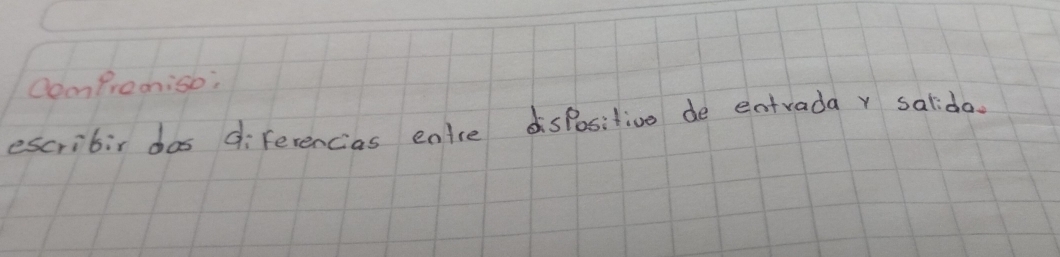 Compromiso:
escribir dos diferencias entre dispositivo de entrada y salida.